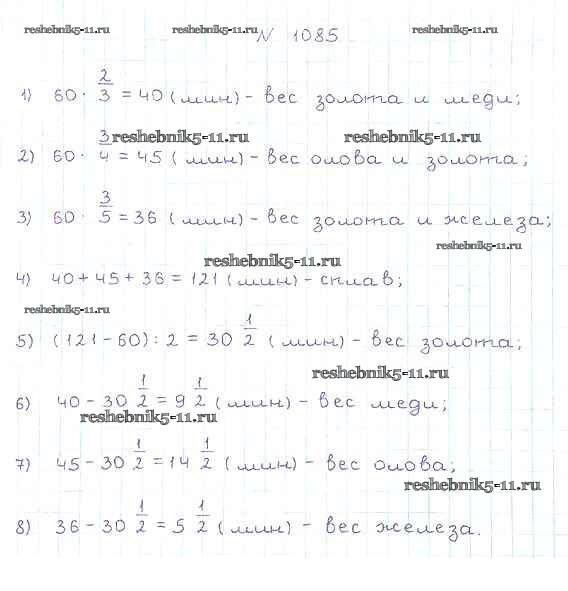 reshebnik5-11.ru reshebnik5-11.ru reshebnik5-11.ru
N 1085
1) 60 · 2/3 = 40 (мин) - вес золота и меди;
reshebnik5-11.ru reshebnik5-11.ru
2) 60 · 3/4 = 45 (мин) - вес олова и золота;
3) 60 · 3/5 = 36 (мин) - вес золота и железа;
reshebnik5-11.ru
reshebnik5-11.ru
4) 40 + 45 + 36 = 121 (мин) - сплав;
reshebnik5-11.ru
5) (121 - 60) : 2 = 30 1/2 (мин) - вес золота;
reshebnik5-11.ru
6) 40 - 30 1/2 = 9 1/2 (мин) - вес меди;
reshebnik5-11.ru
7) 45 - 30 1/2 = 14 1/2 (мин) - вес олова;
reshebnik5-11.ru
8) 36 - 30 1/2 = 5 1/2 (мин) - вес железа.